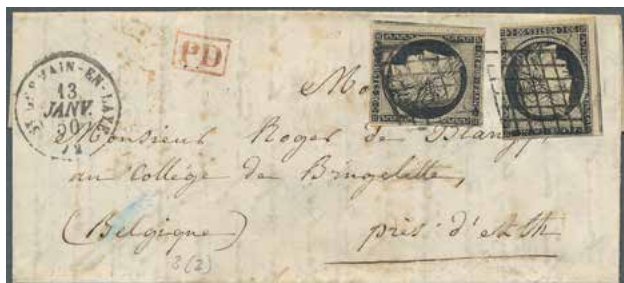 ST GERMAIN-EN-LAYE
13
JANV.
50
72
PD
POSTES
POSTES
Mo
Monsieur Roger de Blangy
au Collége de Brugelette,
(Belgique) près d'Ath
3(2)